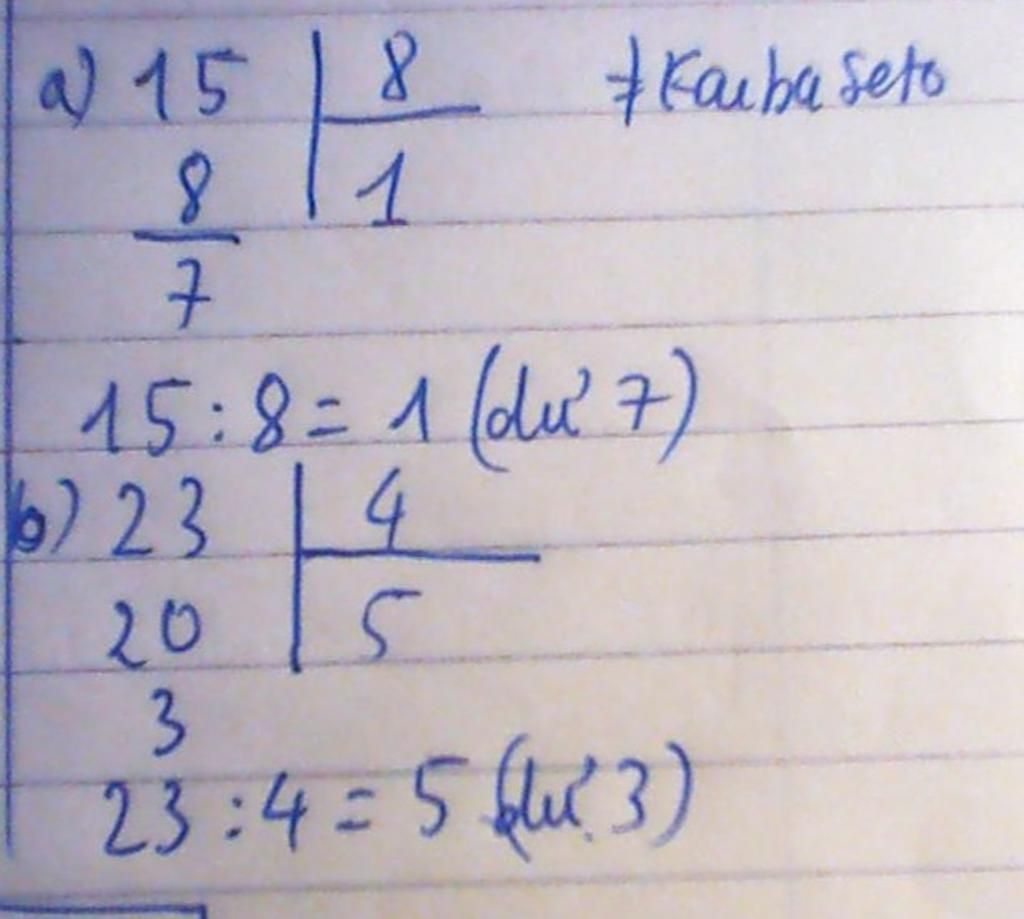 a) 15 | 8 ≠ Kaiba Seto
8 | 1
7
15 : 8 = 1 (dư 7)
b) 23 | 4
20 | 5
3
23 : 4 = 5 (dư 3)